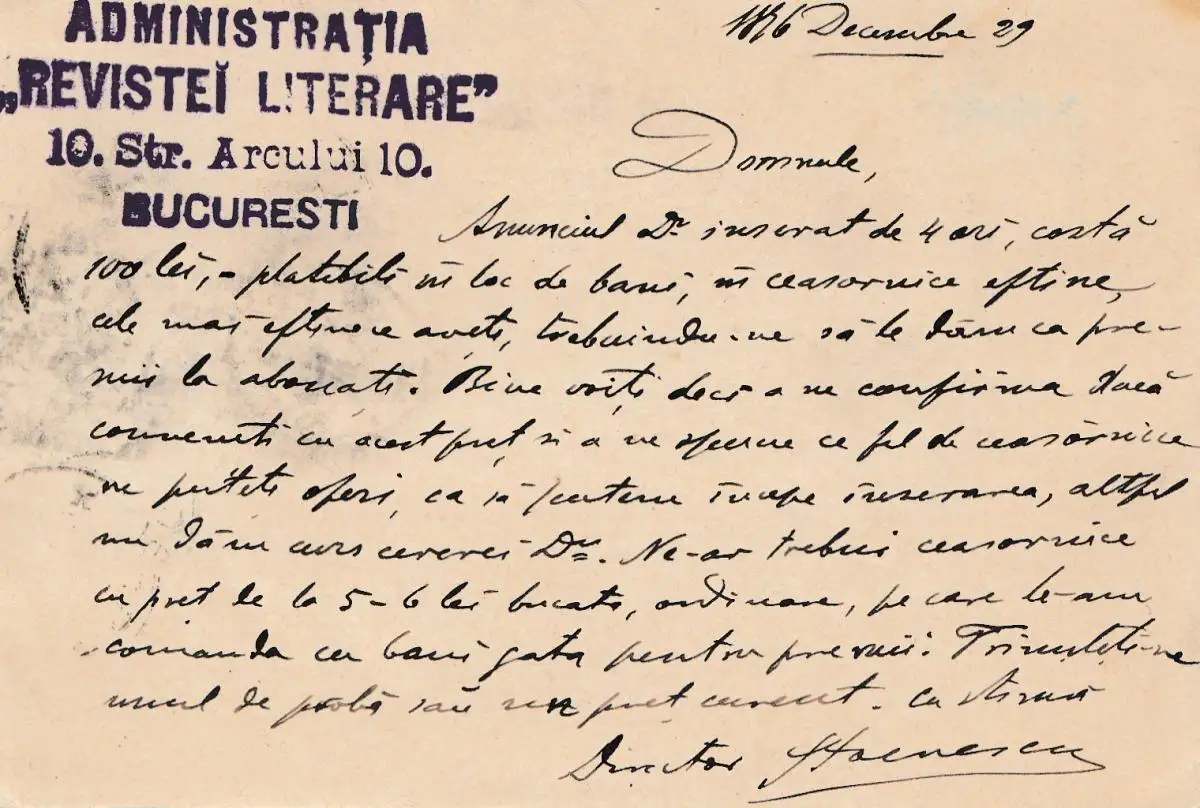 ADMINISTRAȚIA
„REVISTEĬ LITERARE”
10. Str. Arcului 10.
BUCURESTI
Decembre 29
Domnule,
Anunciul Dv inserat de 4 ori, costă
100 lei, - platibili în loc de bani, în ceasornice eftine,
cele mai eftine ce aveti, trebuindu-ne să le dăm ca pre-
mii la abonati. Bine voiți deci a ne confirma dacă
conveniti cu acest preț si a ne spune ce fel de ceasornice
ne puteti oferi, ca să putem începe inserarea, altfel
nu dăm curs cererei Dv. Ne-ar trebui ceasornice
cu pret de la 5-6 lei bucata, ordinare, pe care le-am
comanda cu bani gata pentru premii. Trimiteti-ne
unul de probă sau un pret curent. Cu stimă
Director